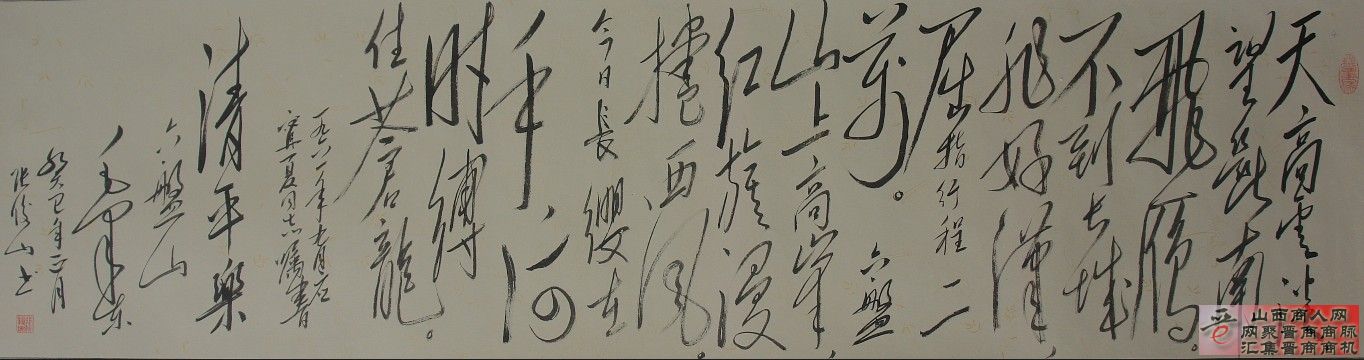 天高云淡
望断南
飛雁。
不到长城
非好漢,
屈指行程二
萬。六盤
山上高峰,
红旗漫
捲西风。
今日長缨在
手,何
时缚
住苍龍。
一九六一年九月应
宁夏同志嘱书
清平樂
六盤山
毛泽东
癸巳年正月
山书
晋
山西商人网
网聚晋商商脉
汇集晋商商机